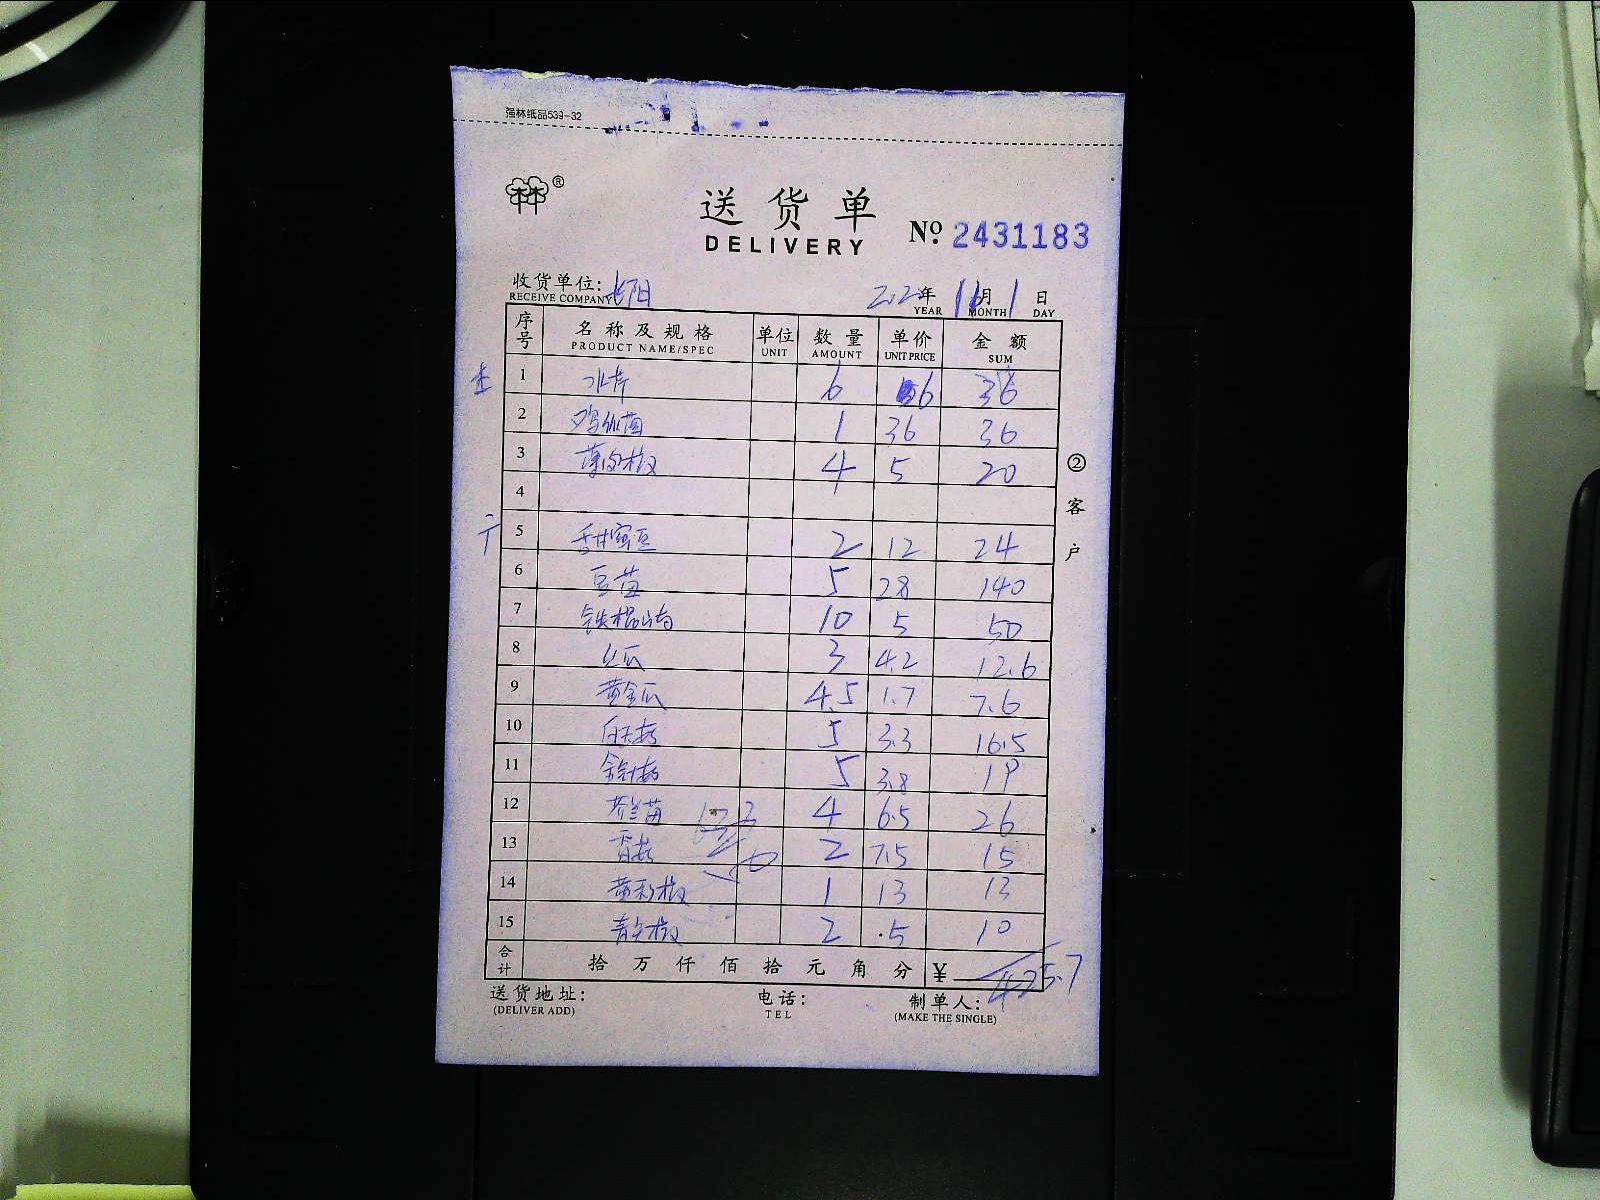 强林纸品539-32
®
送货单
DELIVERY
No. 2431183
收货单位:
RECEIVE COMPANY
年 月 1 日
YEAR MONTH DAY
序号 名称及规格 单位 数量 单价 金额
PRODUCT NAME/SPEC UNIT AMOUNT UNIT PRICE SUM
1 水芹 6 6 36
2 鸡丝菌 1 36 36
3 薄肉椒 4 5 20
4
5 甜蜜豆 2 12 24
6 豆苗 5 28 140
7 铁棍山药 10 5 50
8 丝瓜 3 4.2 12.6
9 黄金瓜 4.5 1.7 7.6
10 白玉菇 5 3.3 16.5
11 金针菇 5 3.8 19
12 芥兰苗 4 6.5 26
13 香菇 2 7.5 15
14 黄彩椒 1 13 13
15 青尖椒 2 5 10
合计 拾 万 仟 佰 拾 元 角 分 ¥ 425.7
②客户
送货地址: 电话: 制单人:
(DELIVER ADD) TEL (MAKE THE SINGLE)